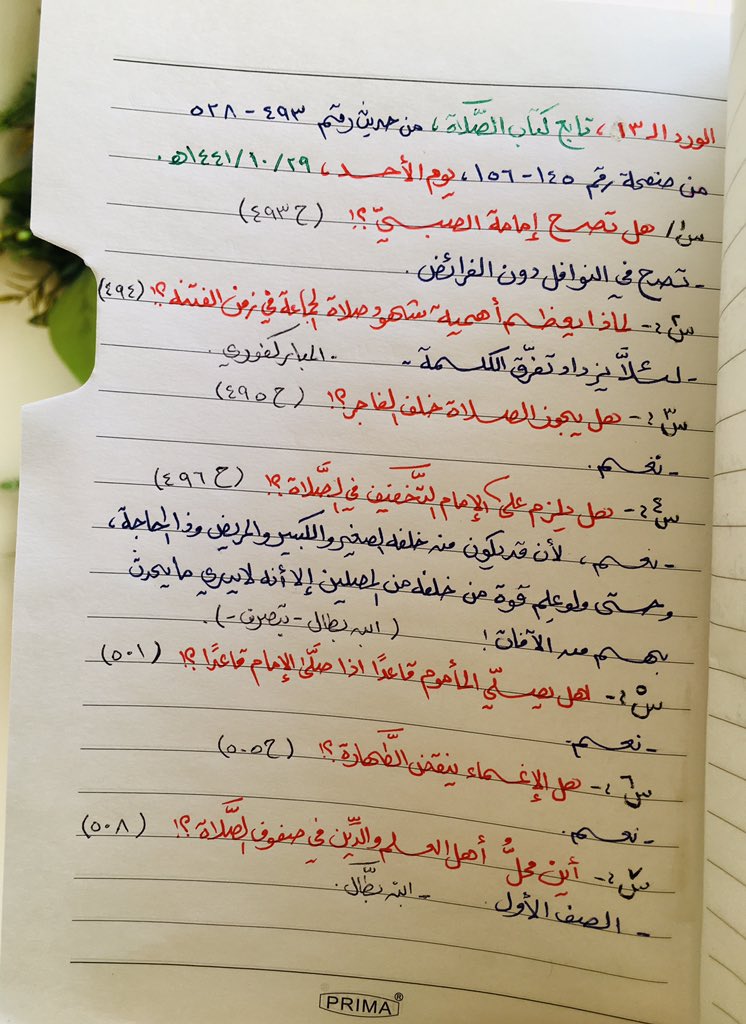 الورد الـ ١٣ ، تابع كتاب الصَّلاة ، من حديث رقم ٤٩٣ - ٥٢٨
من صفحة رقم ١٤٥ - ١٥٦ ، يوم الأحد ، ٢٩ / ١٠ / ١٤٤١هـ .
س١/ هل تصح إمامة الصبيّ ؟! (ح ٤٩٣)
- تصح في النوافل دون الفرائض .
س٢:- لماذا يعظم أهمية شهود صلاة الجماعة في زمن الفتنة ؟! (٤٩٤)
- لئلَّا يزداد تفرّق الكلمة - . المباركفوري .
س٣:- هل يجوز الصلاة خلف الفاجر ؟! (ح ٤٩٥)
- نعم .
س٤:- هل يلزم على الإمام التَّخفيف في الصَّلاة ؟! (ح ٤٩٦)
- نعم ، لأن قد يكون من خلفه الصغير والكبير والمريض وذا الحاجة ،
وحتى ولو علم قوة من خلفه من المصلين إلا أنه لا يدري ما يحدث
بهم من الآفات ! ( ابن بطال - بتصرف - ) .
س٥:- هل يصلّي المأموم قاعدًا اذا صلَّى الإمام قاعدًا ؟! (٥٠١)
- نعم .
س٦:- هل الإغماء ينقض الطَّهارة ؟! (ح ٥٠٥)
- نعم .
س٧:- أين محلُّ أهل العلم والدِّين في صفوف الصَّلاة ؟! (٥٠٨)
- الصف الأول . - ابن بطَّال .
PRIMA®